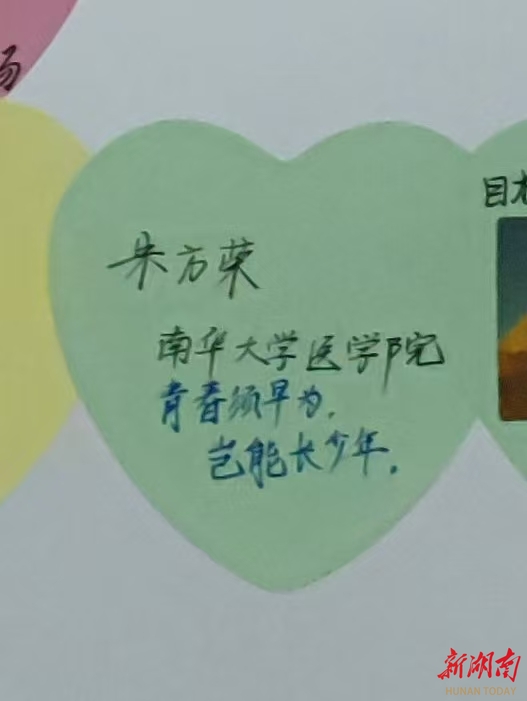 汤
目标
朱方荣
南华大学医学院
青春须早为，
岂能长少年。
新湖南
HUNAN TODAY